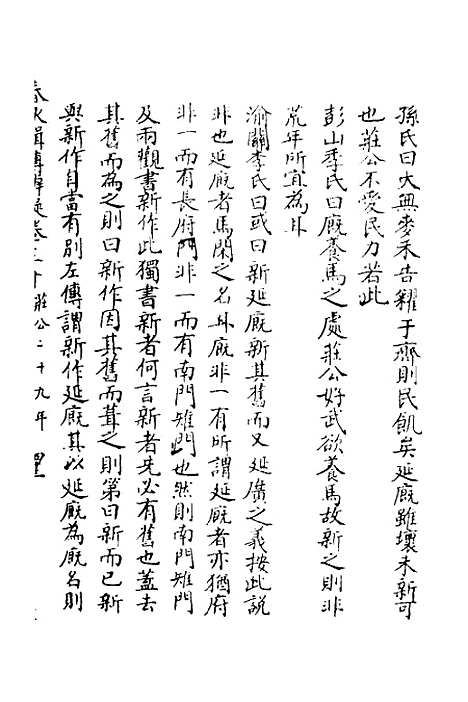 孫氏曰大無麥禾告糴于齊則民飢矣延廄雖壞未新可
也莊公不愛民力若此
彭山季氏曰廄養馬之處莊公好武欲養馬故新之則非
荒年所宜為耳
渝關李氏曰或曰新延廄新其舊而又延廣之義按此說
非也延廄者馬閑之名耳廄非一有所謂延廄者亦猶府
非一而有長府門非一而有南門雉門也然則南門雉門
及兩觀書新作此獨書新者何言新者先必有舊也蓋去
其舊而為之則曰新作因其舊而葺之則第曰新而已新
與新作自當有別左傳謂新作延廄其以延廄為廄名則
春秋輯傳辨疑卷二十莊公二十九年